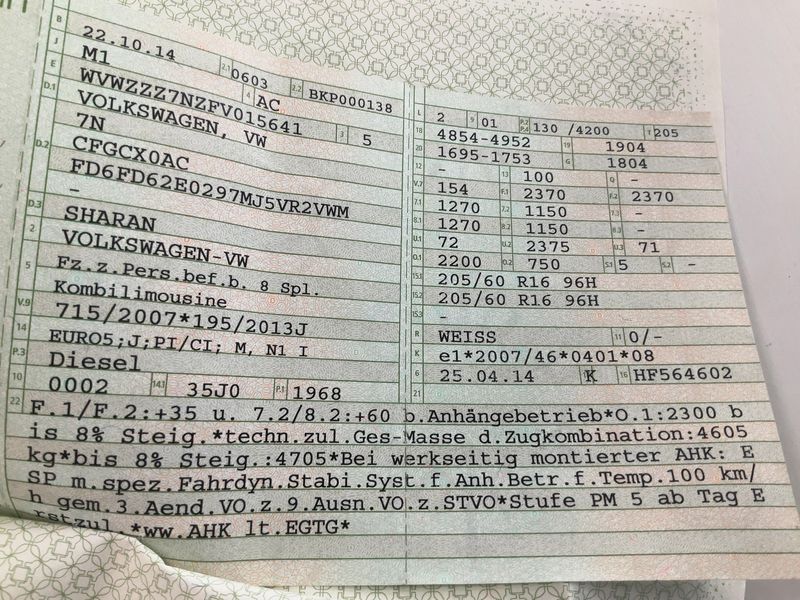 B 22.10.14 2.1 0603 2.2 BKP000138
J M1 4 AC
E WVWZZZ7NZFV015641 3 5
D.1 VOLKSWAGEN, VW
7N
D.2 CFGCX0AC
FD6FD62E0297MJ5VR2VWM
-
D.3 SHARAN
2 VOLKSWAGEN-VW
5 Fz.z.Pers.bef.b. 8 Spl.
Kombilimousine
V.9 715/2007*195/2013J
14 EURO5;J;PI/CI; M, N1 I
P.3 Diesel
10 0002 14.1 35J0 P.1 1968
L 2 9 01 P.2 P.4 130 /4200 T 205
18 4854-4952 19 1904
20 1695-1753 G 1804
12 - 13 100 Q -
V.7 154 F.1 2370 F.2 2370
7.1 1270 7.2 1150 7.3 -
8.1 1270 8.2 1150 8.3 -
U.1 72 U.2 2375 U.3 71
O.1 2200 O.2 750 S.1 5 S.2 -
15.1 205/60 R16 96H
15.2 205/60 R16 96H
15.3 -
R WEISS 11 0/-
K e1*2007/46*0401*08
6 25.04.14 K 16 HF564602
21
22 F.1/F.2:+35 u. 7.2/8.2:+60 b.Anhängebetrieb*O.1:2300 b
is 8% Steig.*techn.zul.Ges-Masse d.Zugkombination:4605
kg*bis 8% Steig.:4705*Bei werkseitig montierter AHK: E
SP m.spez.Fahrdyn.Stabi.Syst.f.Anh.Betr.f.Temp.100 km/
h gem.3.Aend.VO.z.9.Ausn.VO.z.STVO*Stufe PM 5 ab Tag E
rstzul.*ww.AHK lt.EGTG*